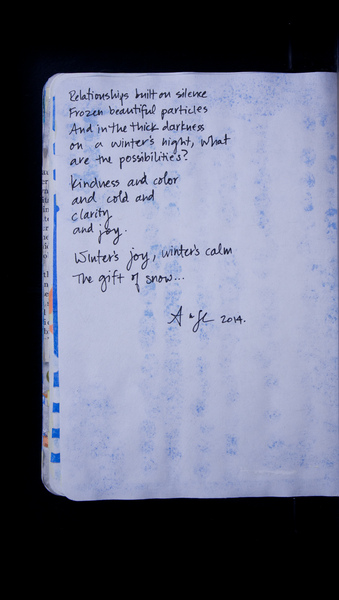 Relationships built on silence
Frozen beautiful particles
And in the thick darkness
on a winter's night, what
are the possibilities?
kindness and color
and cold and
clarity
and joy.
Winter's joy, winter's calm
The gift of snow...
2014.